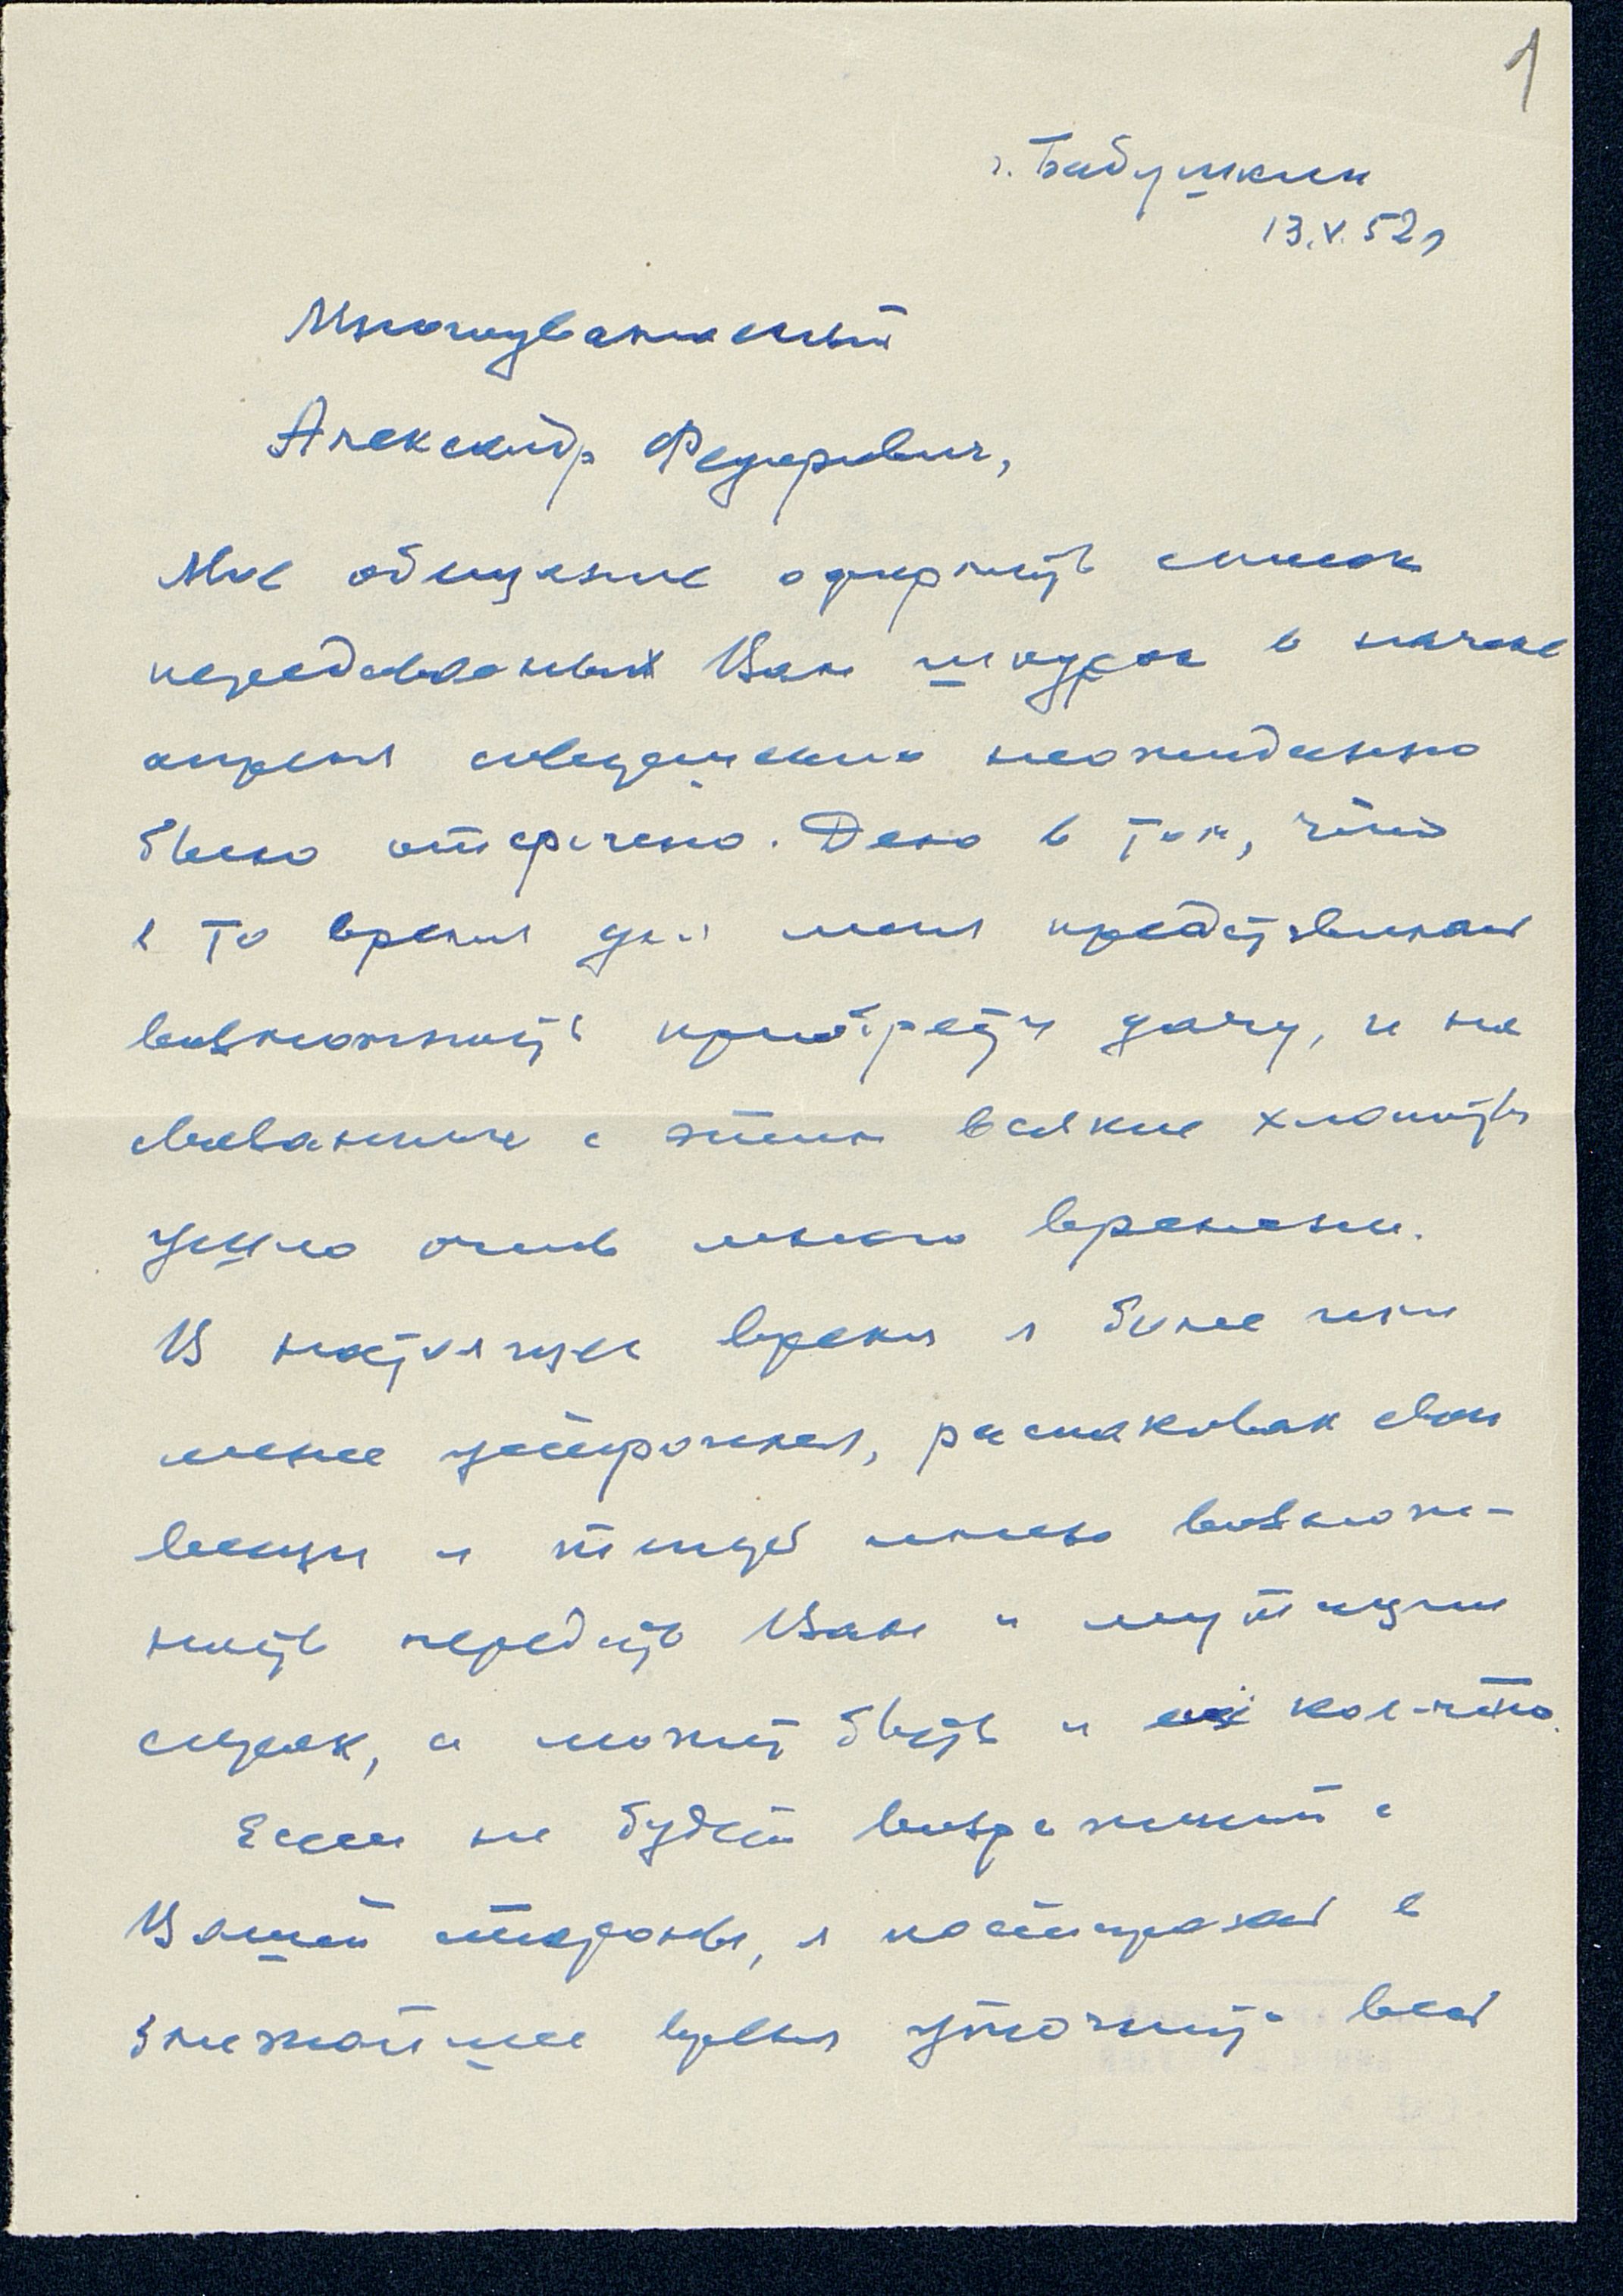 1
г. Бабушкин
13.V.52г
Многоуважаемый
Александр Федорович,
Мое обещание одержать список
передаваемых Вам шкурок в начале
апреля совершенно неожиданно
было отсрочено. Дело в том, что
в то время для меня представилась
возможность приобрести дачу, и на
связанные с этим всякие хлопоты
ушло очень много времени.
В настоящее время я более или
менее устроился, распаковал свои
вещи и теперь имею возмож-
ность передать Вам и
а может быть и еще кое-что.
Если не будет возражений с
Вашей стороны, я постараюсь в
ближайшее время уточнить весь